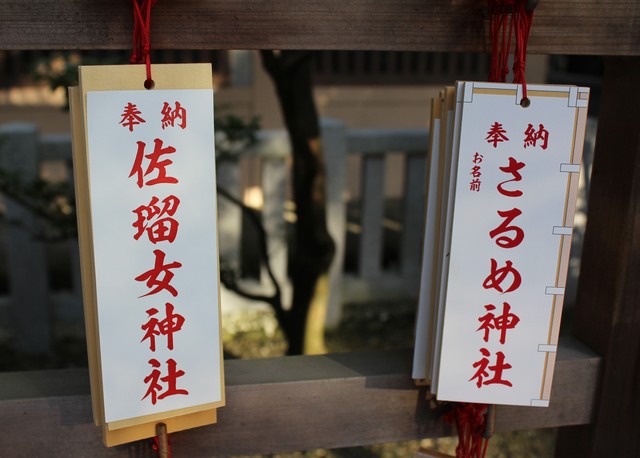 奉納
佐瑠女神社
奉納
お名前
さるめ神社